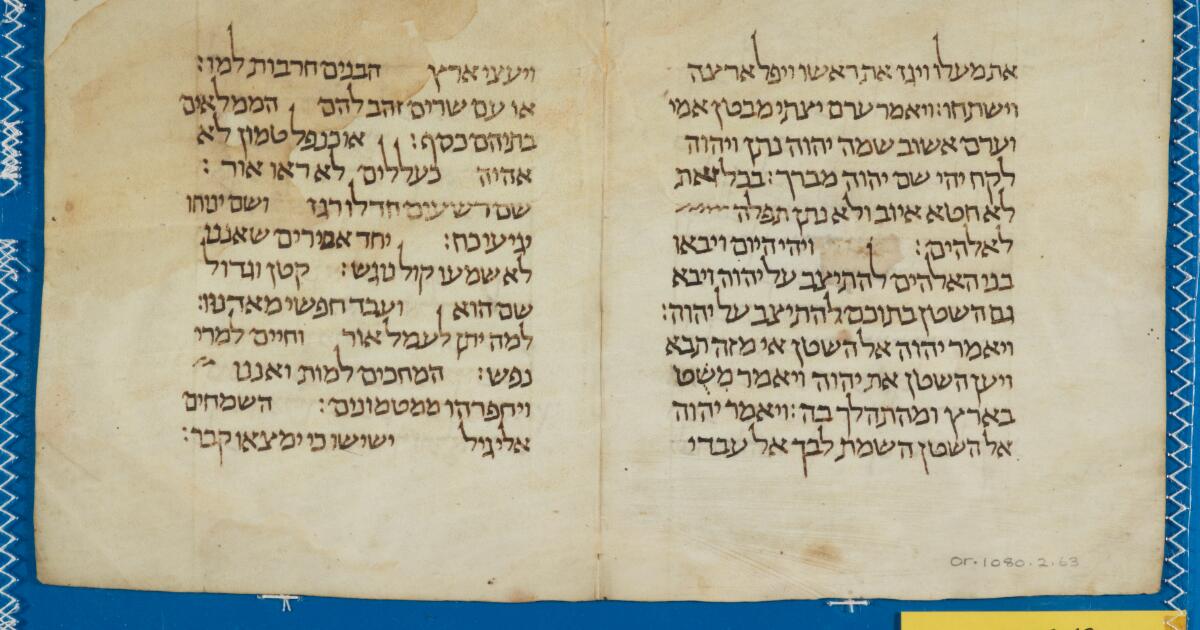 את מעלו ויגז את ראשו ויפל ארצה
וישתחו: ויאמר ערם יצתי מבטן אמי
וערם אשוב שמה יהוה נתן ויהוה
לקח יהי שם יהוה מברך: בכל זאת
לא חטא איוב ולא נתן תפלה
לאלהים: ויהי היום ויבאו
בני האלהים להתיצב על יהוה ויבא
גם השטן בתוכם להתיצב על יהוה:
ויאמר יהוה אל השטן אי מזה תבא
ויען השטן את יהוה ויאמר מִשֻּׁט
בארץ ומהתהלך בה: ויאמר יהוה
אל השטן השמת לבך אל עבדי
ויעצי ארץ הבנים חרבות למו:
או עם שרים זהב להם הממלאים
בתיהם כסף: או כנפל טמון לא
אהיה כעללים לא ראו אור:
שם רשעים חדלו רגז ושם ינוחו
יגיעי כח: יחד אסירים שאננו
לא שמעו קול נוגש: קטן וגדול
שם הוא ועבד חפשי מאדניו:
למה יתן לעמל אור וחיים למרי
נפש: המחכים למות ואננו
ויחפרהו ממטמונים: השמחים
אלי גיל ישישו כי ימצאו קבר:
Or.1080.2.63